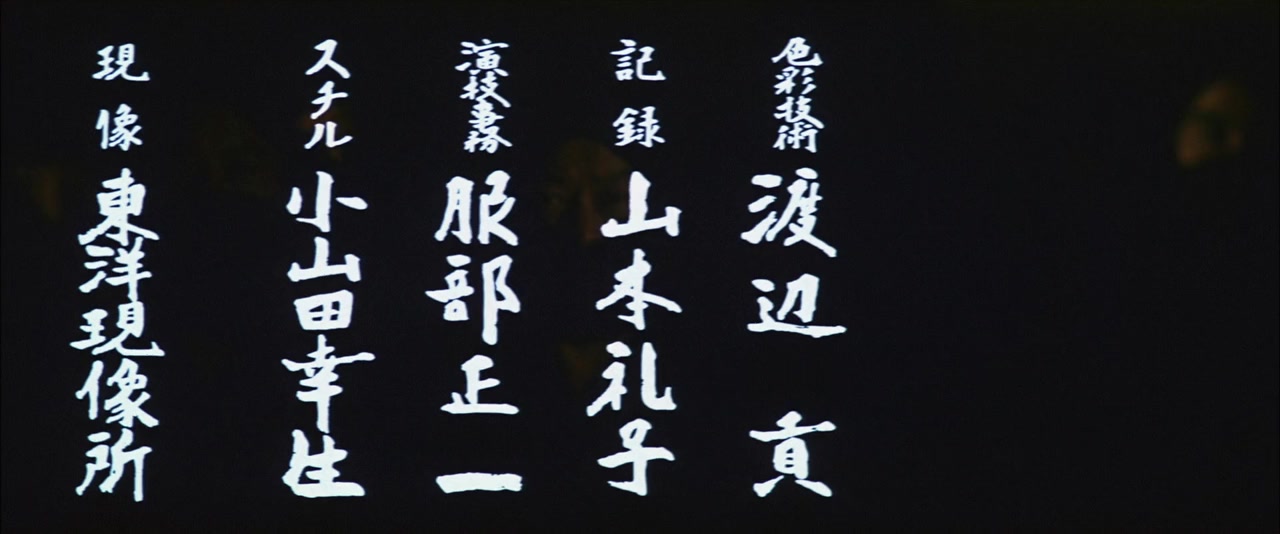 色彩技術 渡辺 貢
記録 山本礼子
演技事務 服部正一
スチル 小山田幸生
現像 東洋現像所